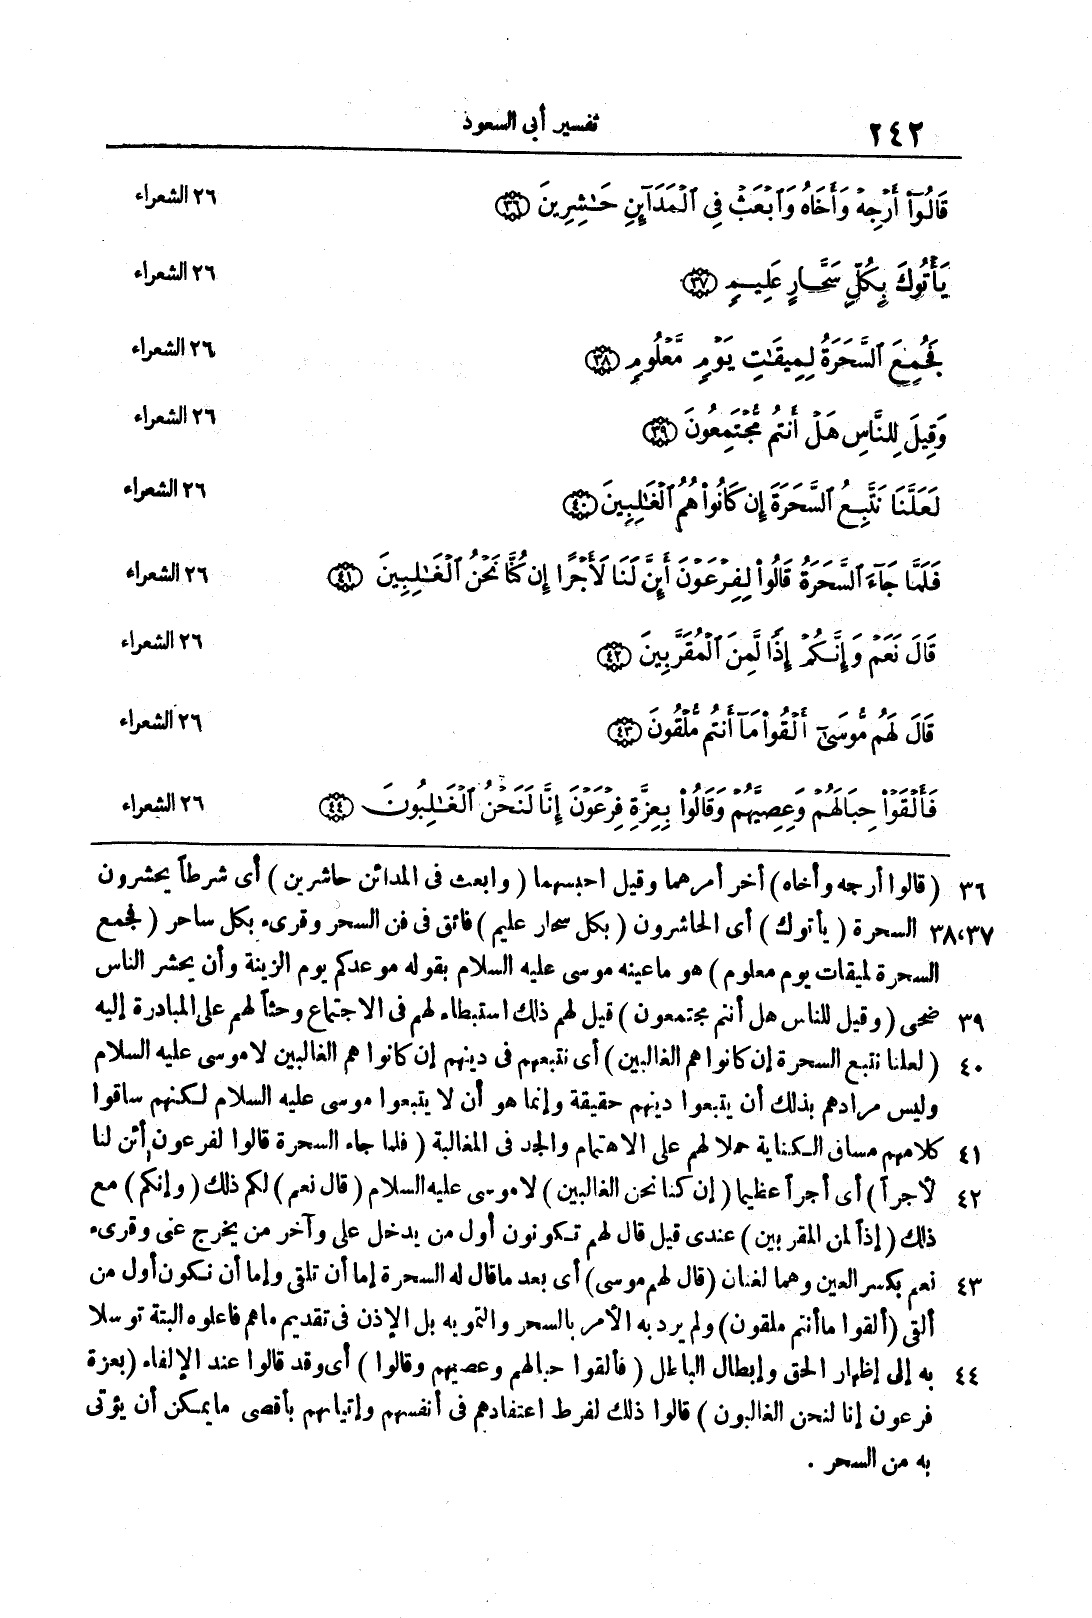 ٢٤٢ تفسير أبى السعود
قَالُوٓا۟ أَرْجِهْ وَأَخَاهُ وَٱبْعَثْ فِى ٱلْمَدَآئِنِ حَـٰشِرِينَ ٣٦ ٢٦ الشعراء
يَأْتُوكَ بِكُلِّ سَحَّارٍ عَلِيمٍ ٣٧ ٢٦ الشعراء
فَجُمِعَ ٱلسَّحَرَةُ لِمِيقَـٰتِ يَوْمٍ مَّعْلُومٍ ٣٨ ٢٦ الشعراء
وَقِيلَ لِلنَّاسِ هَلْ أَنتُم مُّجْتَمِعُونَ ٣٩ ٢٦ الشعراء
لَعَلَّنَا نَتَّبِعُ ٱلسَّحَرَةَ إِن كَانُوا۟ هُمُ ٱلْغَـٰلِبِينَ ٤٠ ٢٦ الشعراء
فَلَمَّا جَآءَ ٱلسَّحَرَةُ قَالُوا۟ لِفِرْعَوْنَ أَئِنَّ لَنَا لَأَجْرًا إِن كُنَّا نَحْنُ ٱلْغَـٰلِبِينَ ٤١ ٢٦ الشعراء
قَالَ نَعَمْ وَإِنَّكُمْ إِذًا لَّمِنَ ٱلْمُقَرَّبِينَ ٤٢ ٢٦ الشعراء
قَالَ لَهُم مُّوسَىٰٓ أَلْقُوا۟ مَآ أَنتُم مُّلْقُونَ ٤٣ ٢٦ الشعراء
فَأَلْقَوْا۟ حِبَالَهُمْ وَعِصِيَّهُمْ وَقَالُوا۟ بِعِزَّةِ فِرْعَوْنَ إِنَّا لَنَحْنُ ٱلْغَـٰلِبُونَ ٤٤ ٢٦ الشعراء
٣٦ ( قالوا أرجه وأخاه ) أخر أمرهما وقيل احبسهما ( وابعث فى المدائن حاشرين ) أى شرطاً يحشرون
٣٨،٣٧ السحرة ( يأتوك ) أى الحاشرون ( بكل سحار عليم ) فائق فى فن السحر وقرىء بكل ساحر ( فجمع
السحرة لميقات يوم معلوم ) هو ماعينه موسى عليه السلام بقوله موعدكم يوم الزينة وأن يحشر الناس
٣٩ ضحى ( وقيل للناس هل أنتم مجتمعون ) قيل لهم ذلك استبطاء لهم فى الاجتماع وحثاً لهم على المبادرة إليه
٤٠ ( لعلنا نتبع السحرة إن كانوا هم الغالبين ) أى نتبعهم فى دينهم إن كانوا هم الغالبين لاموسى عليه السلام
وليس مرادهم بذلك أن يتبعوا دينهم حقيقة وإنما هو أن لا يتبعوا موسى عليه السلام لكنهم ساقوا
٤١ كلامهم مساق الكناية حملا لهم على الاهتمام والجد فى المغالبة ( فلما جاء السحرة قالوا لفرعون أئن لنا
٤٢ لأجراً ) أى أجراً عظيما ( إن كنا نحن الغالبين ) لاموسى عليه السلام ( قال نعم ) لكم ذلك ( وإنكم ) مع
ذلك ( إذاً لمن المقربين ) عندى قيل قال لهم تكونون أول من يدخل على وآخر من يخرج عنى وقرىء
٤٣ نعم بكسر العين وهما لغتان (قال لهم موسى) أى بعد ماقال له السحرة إما أن تلقى وإما أن نكون أول من
ألقى (ألقوا ما أنتم ملقون) ولم يرد به الأمر بالسحر والتمويه بل الإذن فى تقديم ماهم فاعلوه البتة توسلا
٤٤ به إلى إظهار الحق وإبطال الباطل ( فألقوا حبالهم وعصيهم وقالوا ) أى وقد قالوا عند الإلقاء (بعزة
فرعون إنا لنحن الغالبون ) قالوا ذلك لفرط اعتقادهم فى أنفسهم وإتيانهم بأقصى مايمكن أن يؤتى
به من السحر .